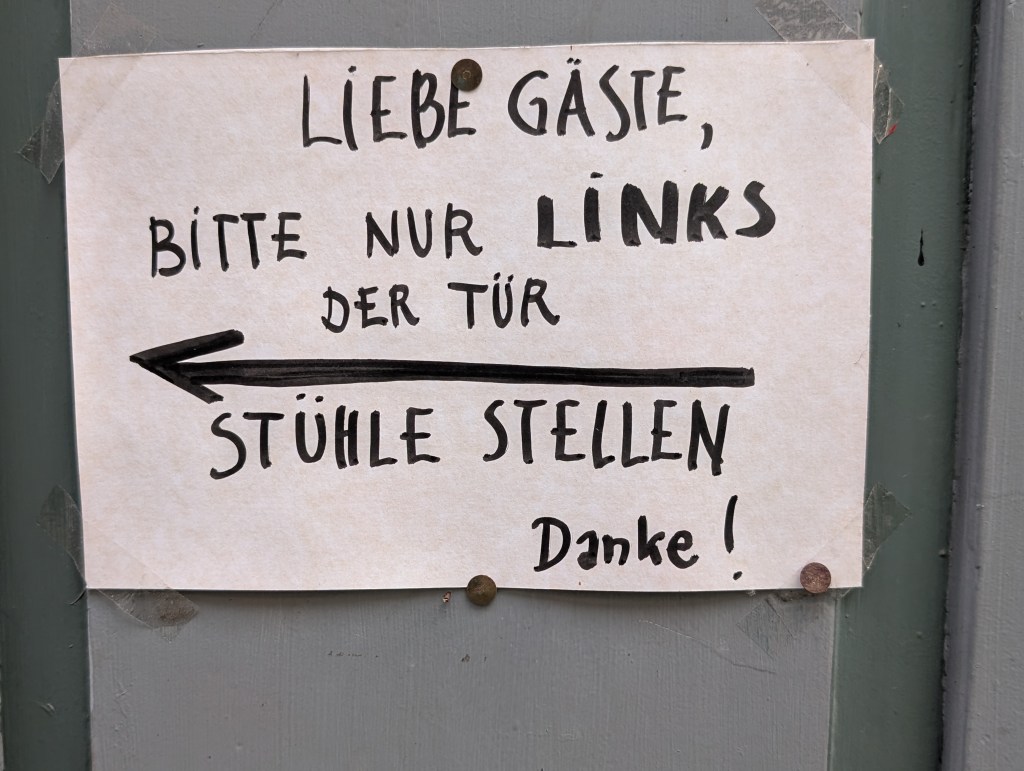 LIEBE GÄSTE,
BITTE NUR LINKS
DER TÜR
STÜHLE STELLEN
Danke!